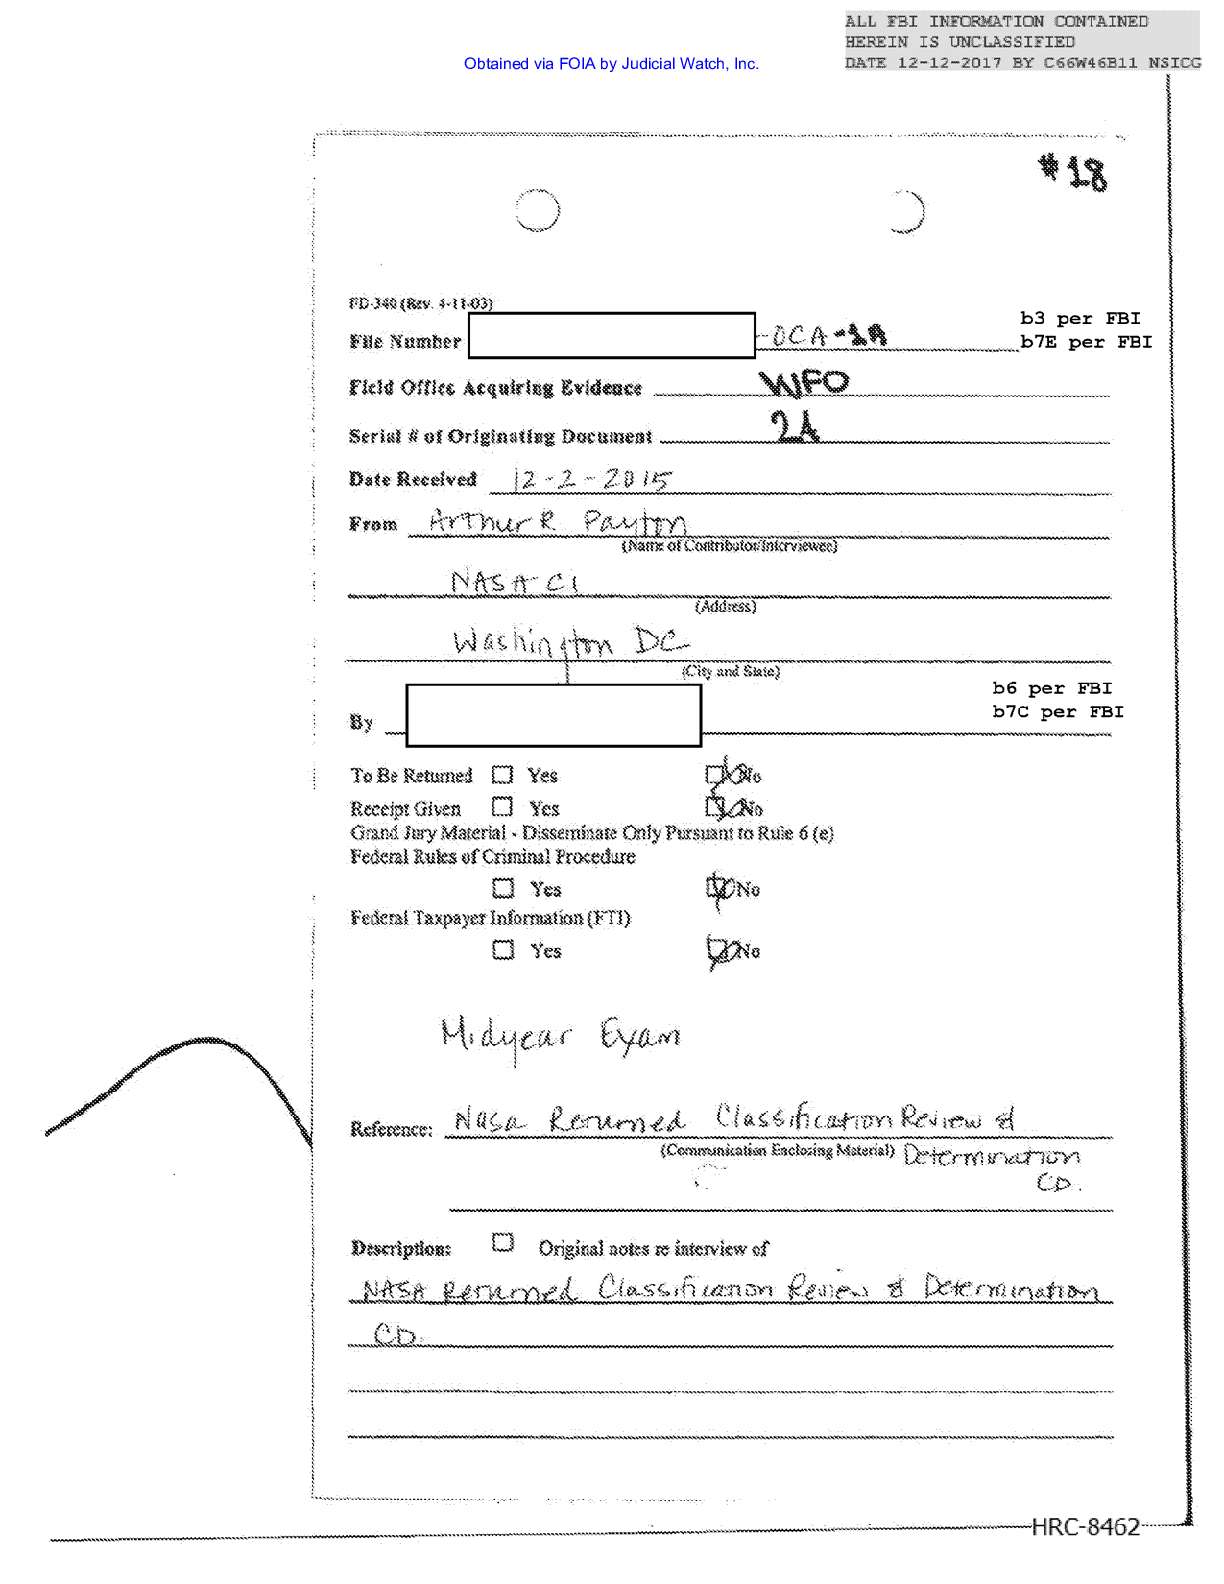 ALL FBI INFORMATION CONTAINED
HEREIN IS UNCLASSIFIED
DATE 12-12-2017 BY C66W46B11 NSICG
Obtained via FOIA by Judicial Watch, Inc.
#18
FD-340 (Rev. 4-11-03)
File Number -OCA-1A
b3 per FBI
b7E per FBI
Field Office Acquiring Evidence WFO
Serial # of Originating Document 24
Date Received 12-2-2015
From Arthur R Payton
(Name of Contributor/Interviewee)
NASA CI
(Address)
Washington DC
(City and State)
b6 per FBI
b7C per FBI
By
To Be Returned Yes No
Receipt Given Yes No
Grand Jury Material - Disseminate Only Pursuant to Rule 6 (e)
Federal Rules of Criminal Procedure
Yes No
Federal Taxpayer Information (FTI)
Yes No
Midyear Exam
Reference: Nasa Returned Classification Review &
(Communication Enclosing Material) Determination
CD.
Description: Original notes re interview of
NASA Returned Classification Review & Determination
CD.
HRC-8462